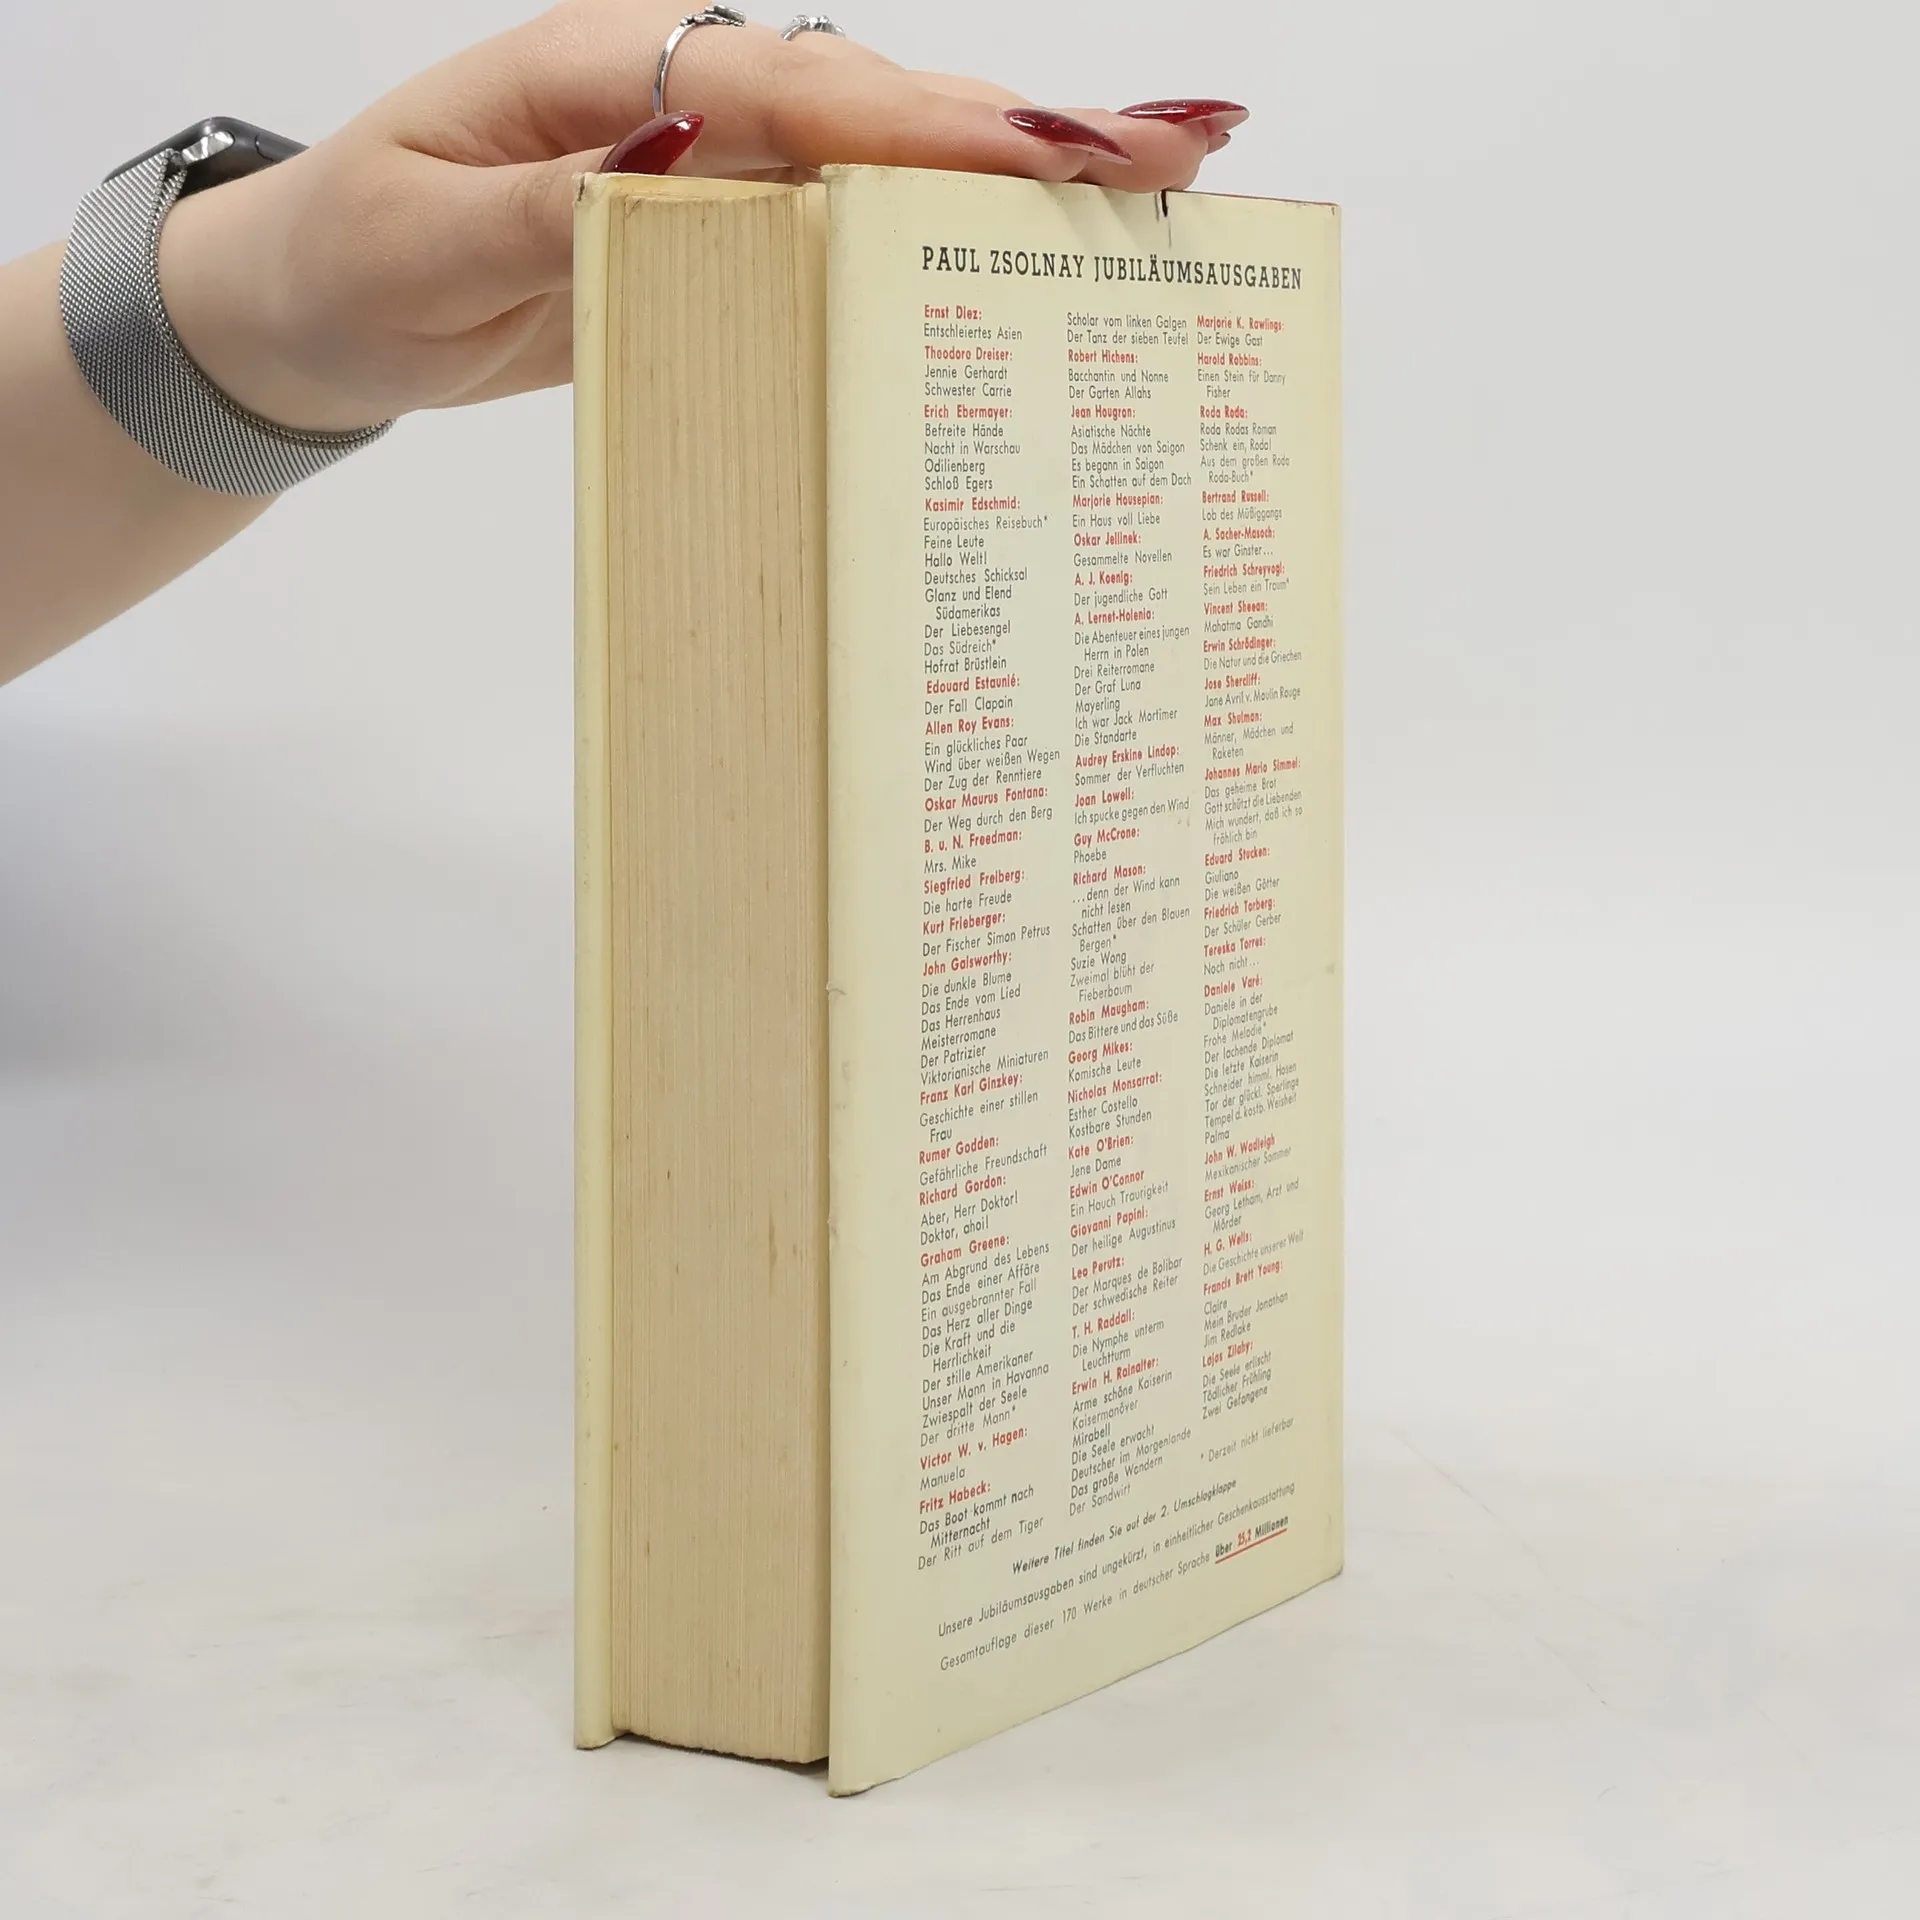 PAUL ZSOLNAY JUBILÄUMSAUSGABEN
Ernst Diez:
Entschleiertes Asien
Theodore Dreiser:
Jennie Gerhardt
Schwester Carrie
Erich Ebermayer:
Befreite Hände
Nacht in Warschau
Odilienberg
Schloß Egers
Kasimir Edschmid:
Europäisches Reisebuch*
Feine Leute
Hallo Welt!
Deutsches Schicksal
Glanz und Elend
Südamerikas
Der Liebesengel
Das Südreich*
Hofrat Brüstlein
Edouard Estaunié:
Der Fall Clapain
Allen Roy Evans:
Ein glückliches Paar
Wind über weißen Wegen
Der Zug der Renntiere
Oskar Maurus Fontana:
Der Weg durch den Berg
B. u. N. Freedman:
Mrs. Mike
Siegfried Freiberg:
Die harte Freude
Kurt Frieberger:
Der Fischer Simon Petrus
John Galsworthy:
Die dunkle Blume
Das Ende vom Lied
Das Herrenhaus
Meisterromane
Der Patrizier
Viktorianische Miniaturen
Franz Karl Ginzkey:
Geschichte einer stillen
Frau
Rumer Godden:
Gefährliche Freundschaft
Richard Gordon:
Aber, Herr Doktor!
Doktor, ahoi!
Graham Greene:
Am Abgrund des Lebens
Das Ende einer Affäre
Ein ausgebrannter Fall
Das Herz aller Dinge
Die Kraft und die
Herrlichkeit
Der stille Amerikaner
Unser Mann in Havanna
Zwiespalt der Seele
Der dritte Mann*
Victor W. v. Hagen:
Manuela
Fritz Habeck:
Das Boot kommt nach
Mitternacht
Der Ritt auf dem Tiger
Scholar vom linken Galgen
Der Tanz der sieben Teufel
Robert Hichens:
Bacchantin und Nonne
Der Garten Allahs
Jean Hougron:
Asiatische Nächte
Das Mädchen von Saigon
Es begann in Saigon
Ein Schatten auf dem Dach
Marjorie Housepian:
Ein Haus voll Liebe
Oskar Jellinek:
Gesammelte Novellen
A. J. Koenig:
Der jugendliche Gott
A. Lernet-Holenia:
Die Abenteuer eines jungen
Herrn in Polen
Drei Reiterromane
Der Graf Luna
Mayerling
Ich war Jack Mortimer
Die Standarte
Audrey Erskine Lindop:
Sommer der Verfluchten
Joan Lowell:
Ich spucke gegen den Wind
Guy McCrone:
Phoebe
Richard Mason:
...denn der Wind kann
nicht lesen
Schatten über den Blauen
Bergen*
Suzie Wong
Zweimal blüht der
Fieberbaum
Robin Maugham:
Das Bittere und das Süße
Georg Mikes:
Komische Leute
Nicholas Monsarrat:
Esther Costello
Kostbare Stunden
Kate O'Brien:
Jene Dame
Edwin O'Connor
Ein Hauch Traurigkeit
Giovanni Papini:
Der heilige Augustinus
Leo Perutz:
Der Marques de Bolibar
Der schwedische Reiter
T. H. Raddall:
Die Nymphe unterm
Leuchtturm
Erwin H. Rainalter:
Arme schöne Kaiserin
Kaisermanöver
Mirabell
Die Seele erwacht
Deutscher im Morgenlande
Das große Wandern
Der Sandwirt
Marjorie K. Rawlings:
Der Ewige Gast
Harold Robbins:
Einen Stein für Danny
Fisher
Roda Roda:
Roda Rodas Roman
Schenk ein, Roda!
Aus dem großen Roda
Roda-Buch*
Bertrand Russell:
Lob des Müßiggangs
A. Sacher-Masoch:
Es war Ginster...
Friedrich Schreyvogl:
Sein Leben ein Traum*
Vincent Sheean:
Mahatma Gandhi
Erwin Schrödinger:
Die Natur und die Griechen
Jose Shercliff:
Jane Avril v. Moulin Rouge
Max Shulman:
Männer, Mädchen und
Raketen
Johannes Mario Simmel:
Das geheime Brot
Gott schützt die Liebenden
Mich wundert, daß ich so
fröhlich bin
Eduard Stucken:
Giuliano
Die weißen Götter
Friedrich Torberg:
Der Schüler Gerber
Tereska Torres:
Noch nicht...
Daniele Varé:
Daniele in der
Diplomatengrube
Frohe Melodie*
Der lachende Diplomat
Die letzte Kaiserin
Schneider himml. Hosen
Tor der glückl. Sperlinge
Tempel d. kostb. Weisheit
Palma
John W. Wadleigh
Mexikanischer Sommer
Ernst Weiss:
Georg Letham, Arzt und
Mörder
H. G. Wells:
Die Geschichte unserer Welt
Francis Brett Young:
Claire
Mein Bruder Jonathan
Jim Redlake
Lajos Zilahy:
Die Seele erlischt
Tödlicher Frühling
Zwei Gefangene
* Derzeit nicht lieferbar
Weitere Titel finden Sie auf der 2. Umschlagklappe
Unsere Jubiläumsausgaben sind ungekürzt, in einheitlicher Geschenkausstattung
Gesamtauflage dieser 170 Werke in deutscher Sprache über 25,2 Millionen